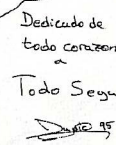 Dedicado de
todo corazon
a
Todo Segu
95